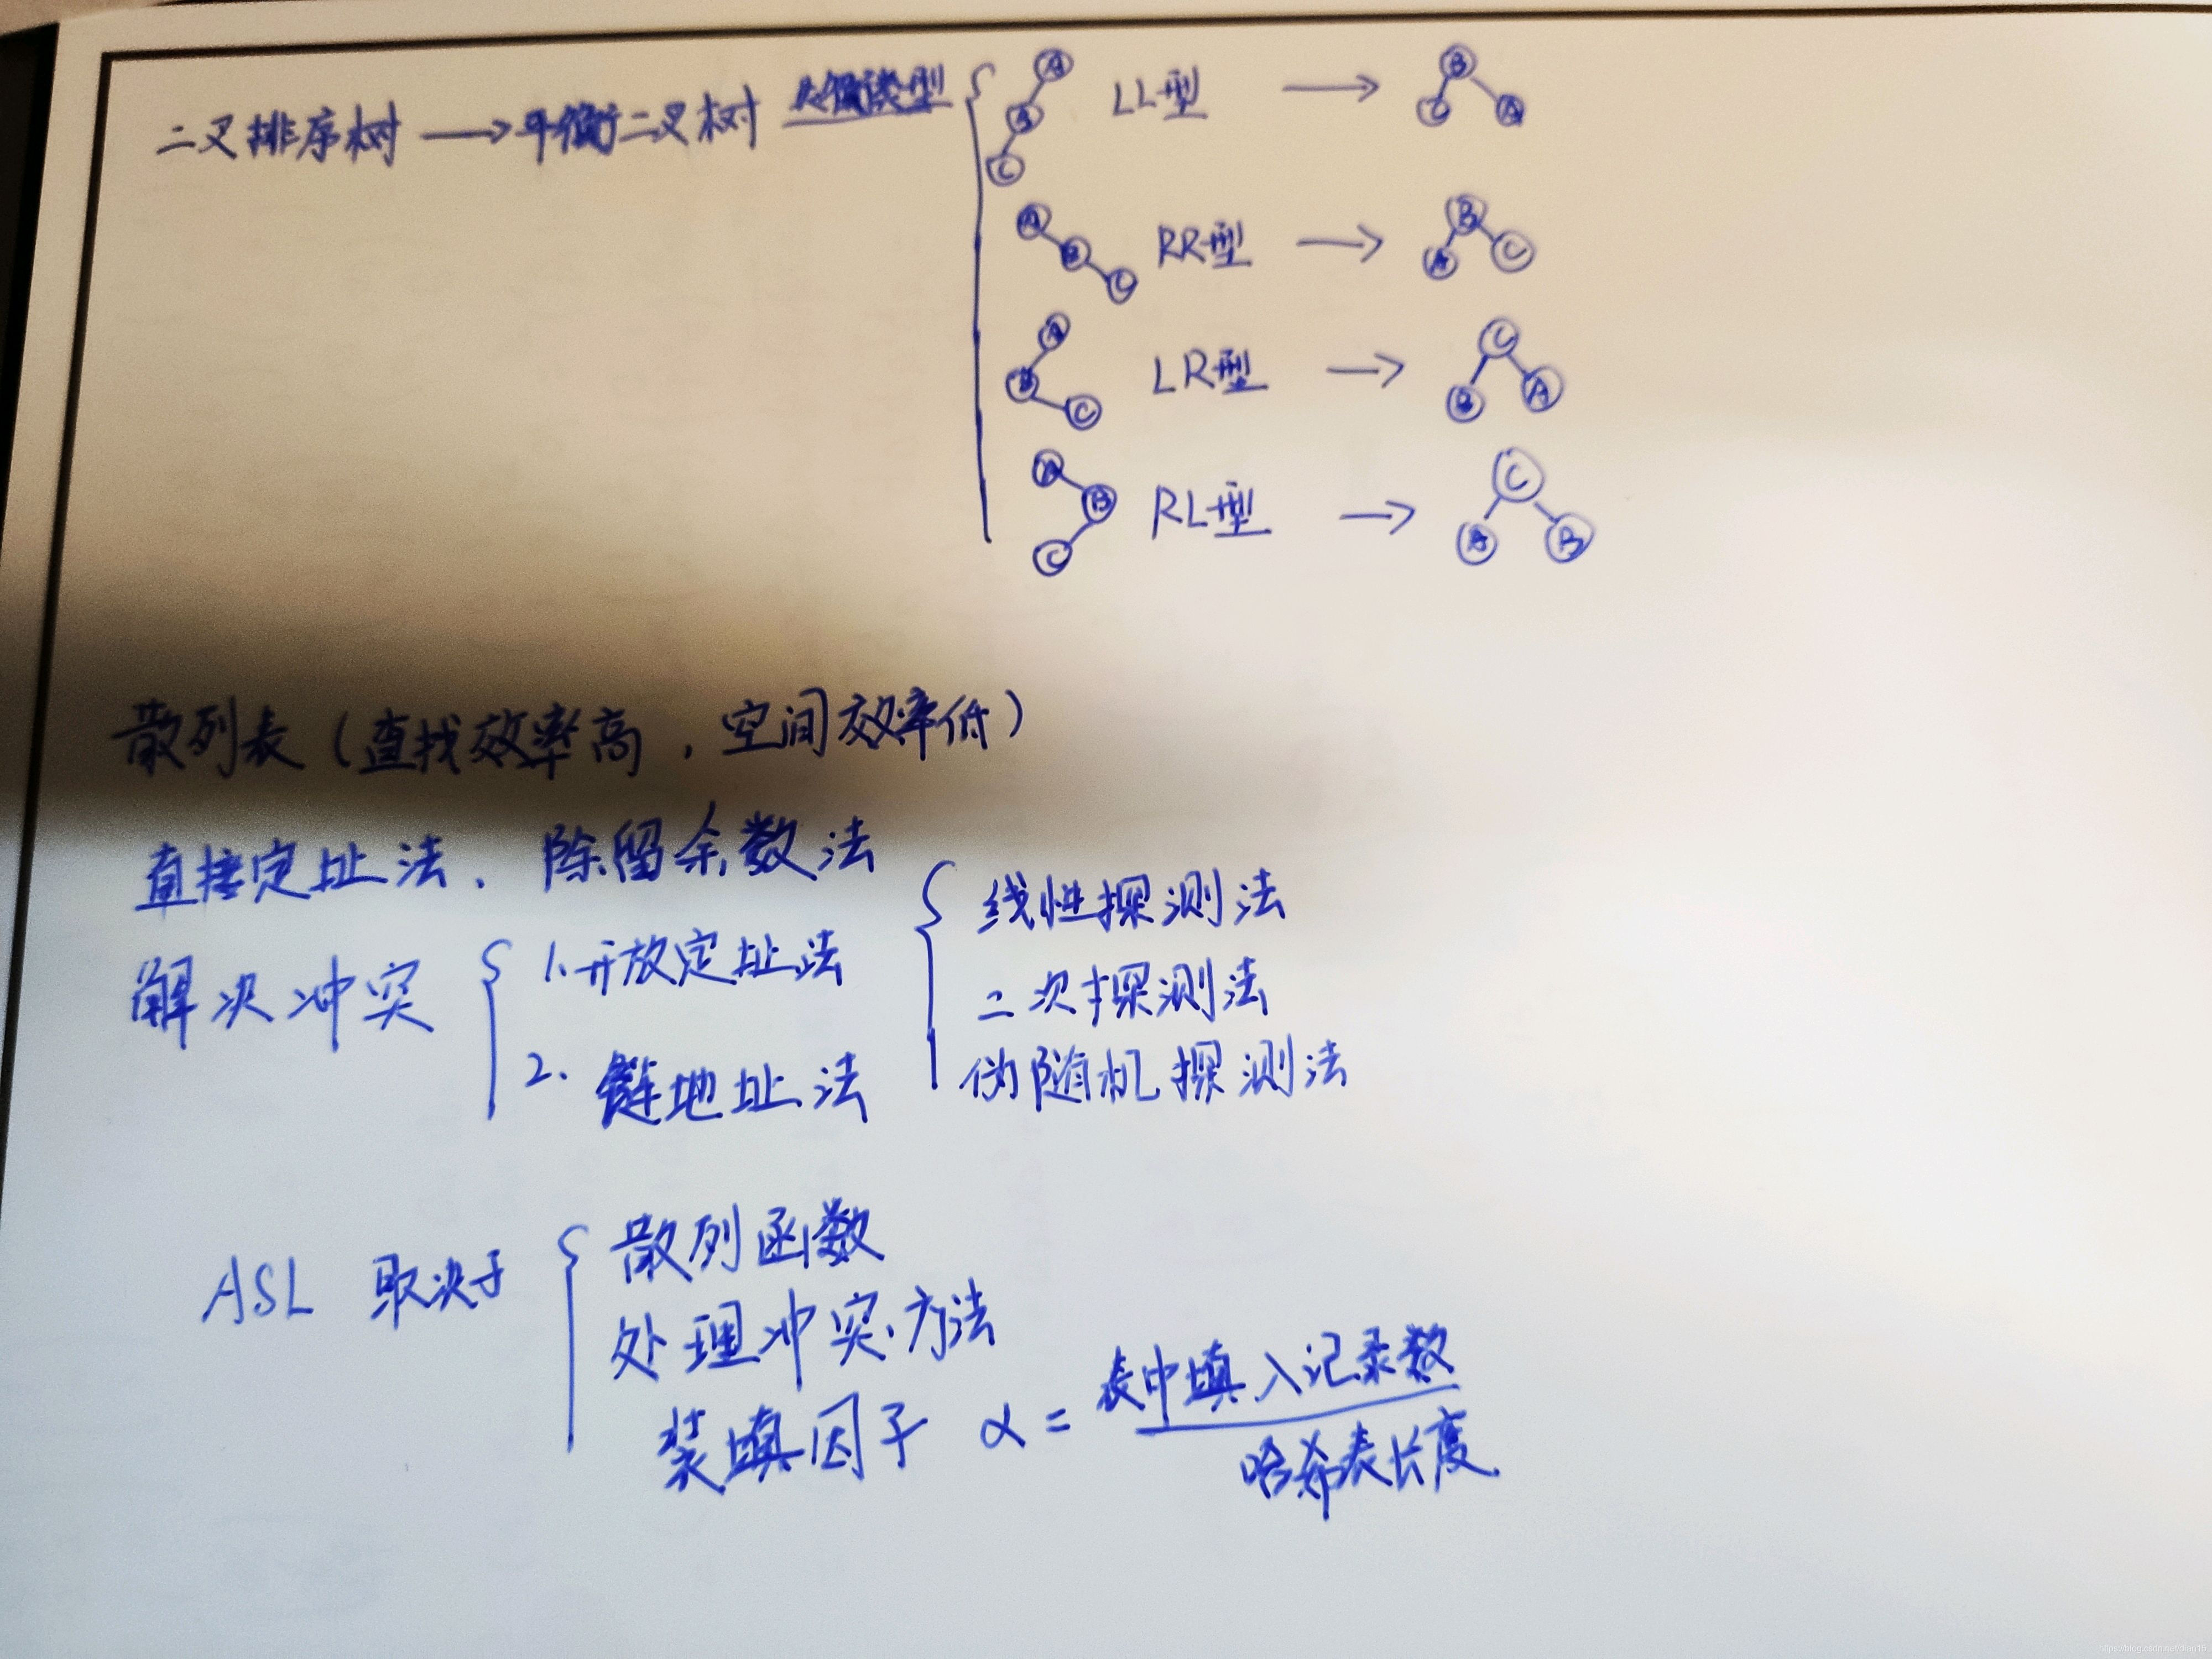 二叉排序树 → 平衡二叉树 类型
A B C LL型 → B C A
A B C RR型 → B A C
A B C LR型 → C B A
A B C RL型 → C A B
散列表（查找效率高，空间效率低）
直接定址法、除留余数法
解决冲突
1. 开放定址法
线性探测法
二次探测法
伪随机探测法
2. 链地址法
ASL 取决于
散列函数
处理冲突方法
装填因子 α = 表中填入记录数
哈希表长度